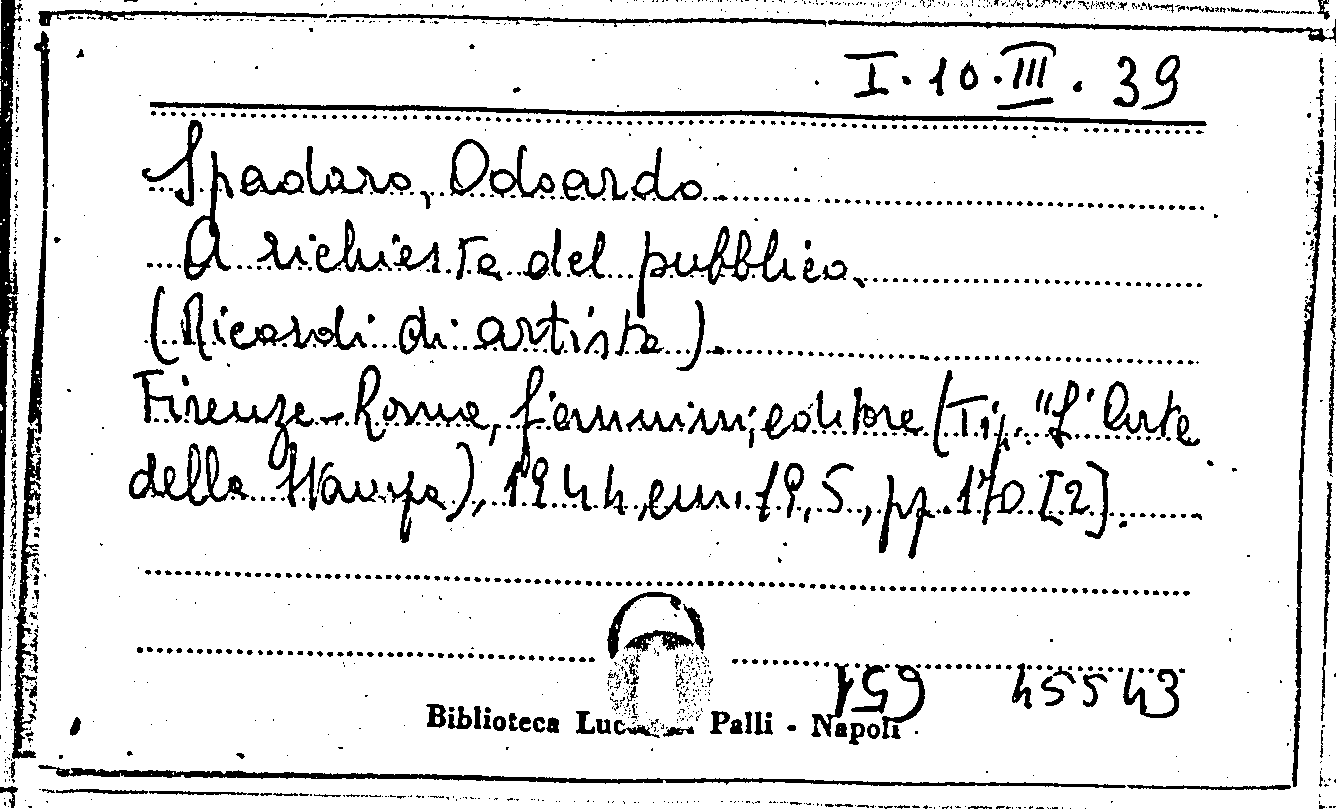 I.10.III.39
Spadaro, Odoardo
A richiesta del pubblico.
(Ricordi di artista).
Firenze-Roma, Giannini, editore (Tip. "L'Arte
della Stampa), 1944, cm. 19,5, pp. 170 [2].
45543
Biblioteca Palli - Napoli